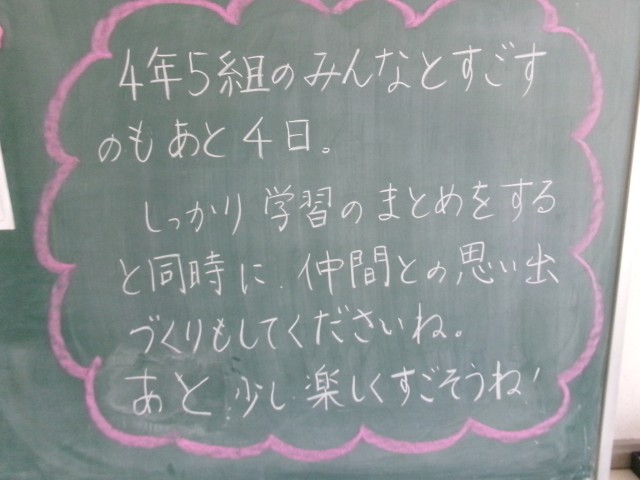 4年5組のみんなとすごす
のもあと4日。
しっかり学習のまとめをする
と同時に、仲間との思い出
づくりもしてくださいね。
あと少し楽しくすごそうね!